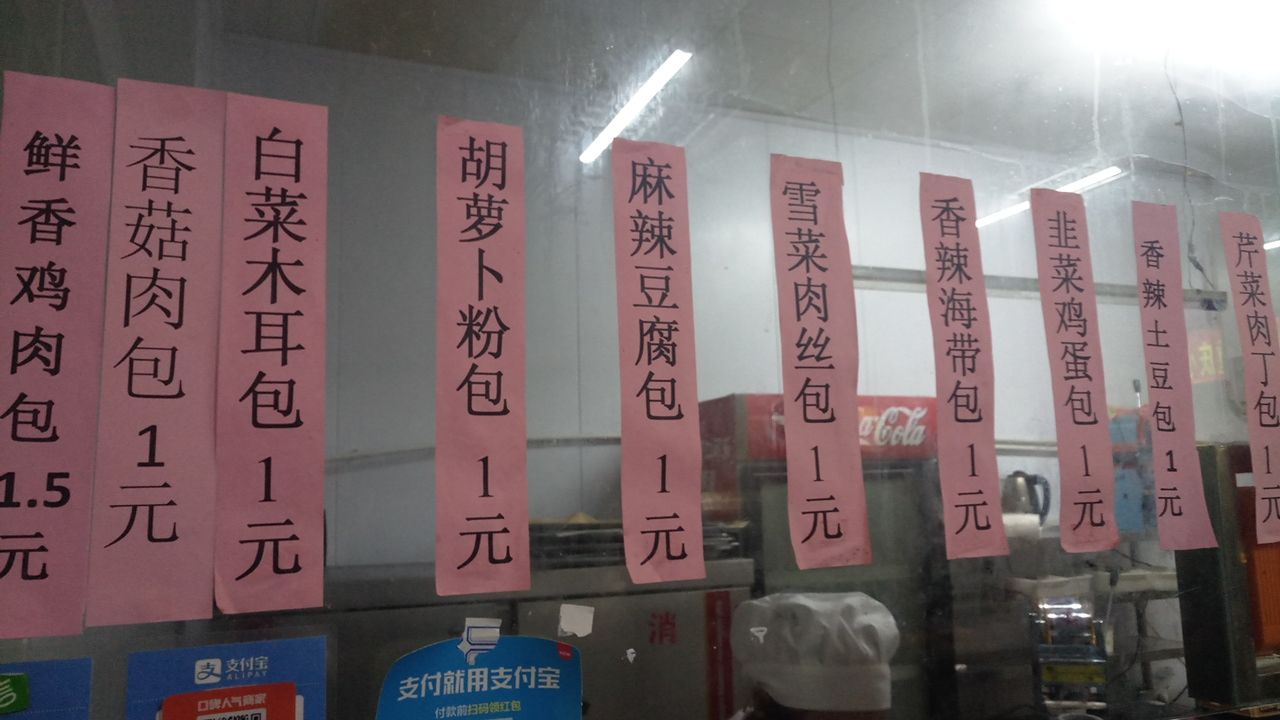 鲜香鸡肉包 1.5元
香菇肉包 1元
白菜木耳包 1元
胡萝卜粉包 1元
麻辣豆腐包 1元
雪菜肉丝包 1元
香辣海带包 1元
韭菜鸡蛋包 1元
香辣土豆包 1元
芹菜肉丁包 1元
Cola
消
支付宝
ALIPAY
口碑人气商家
支付就用支付宝
付款前扫码领红包